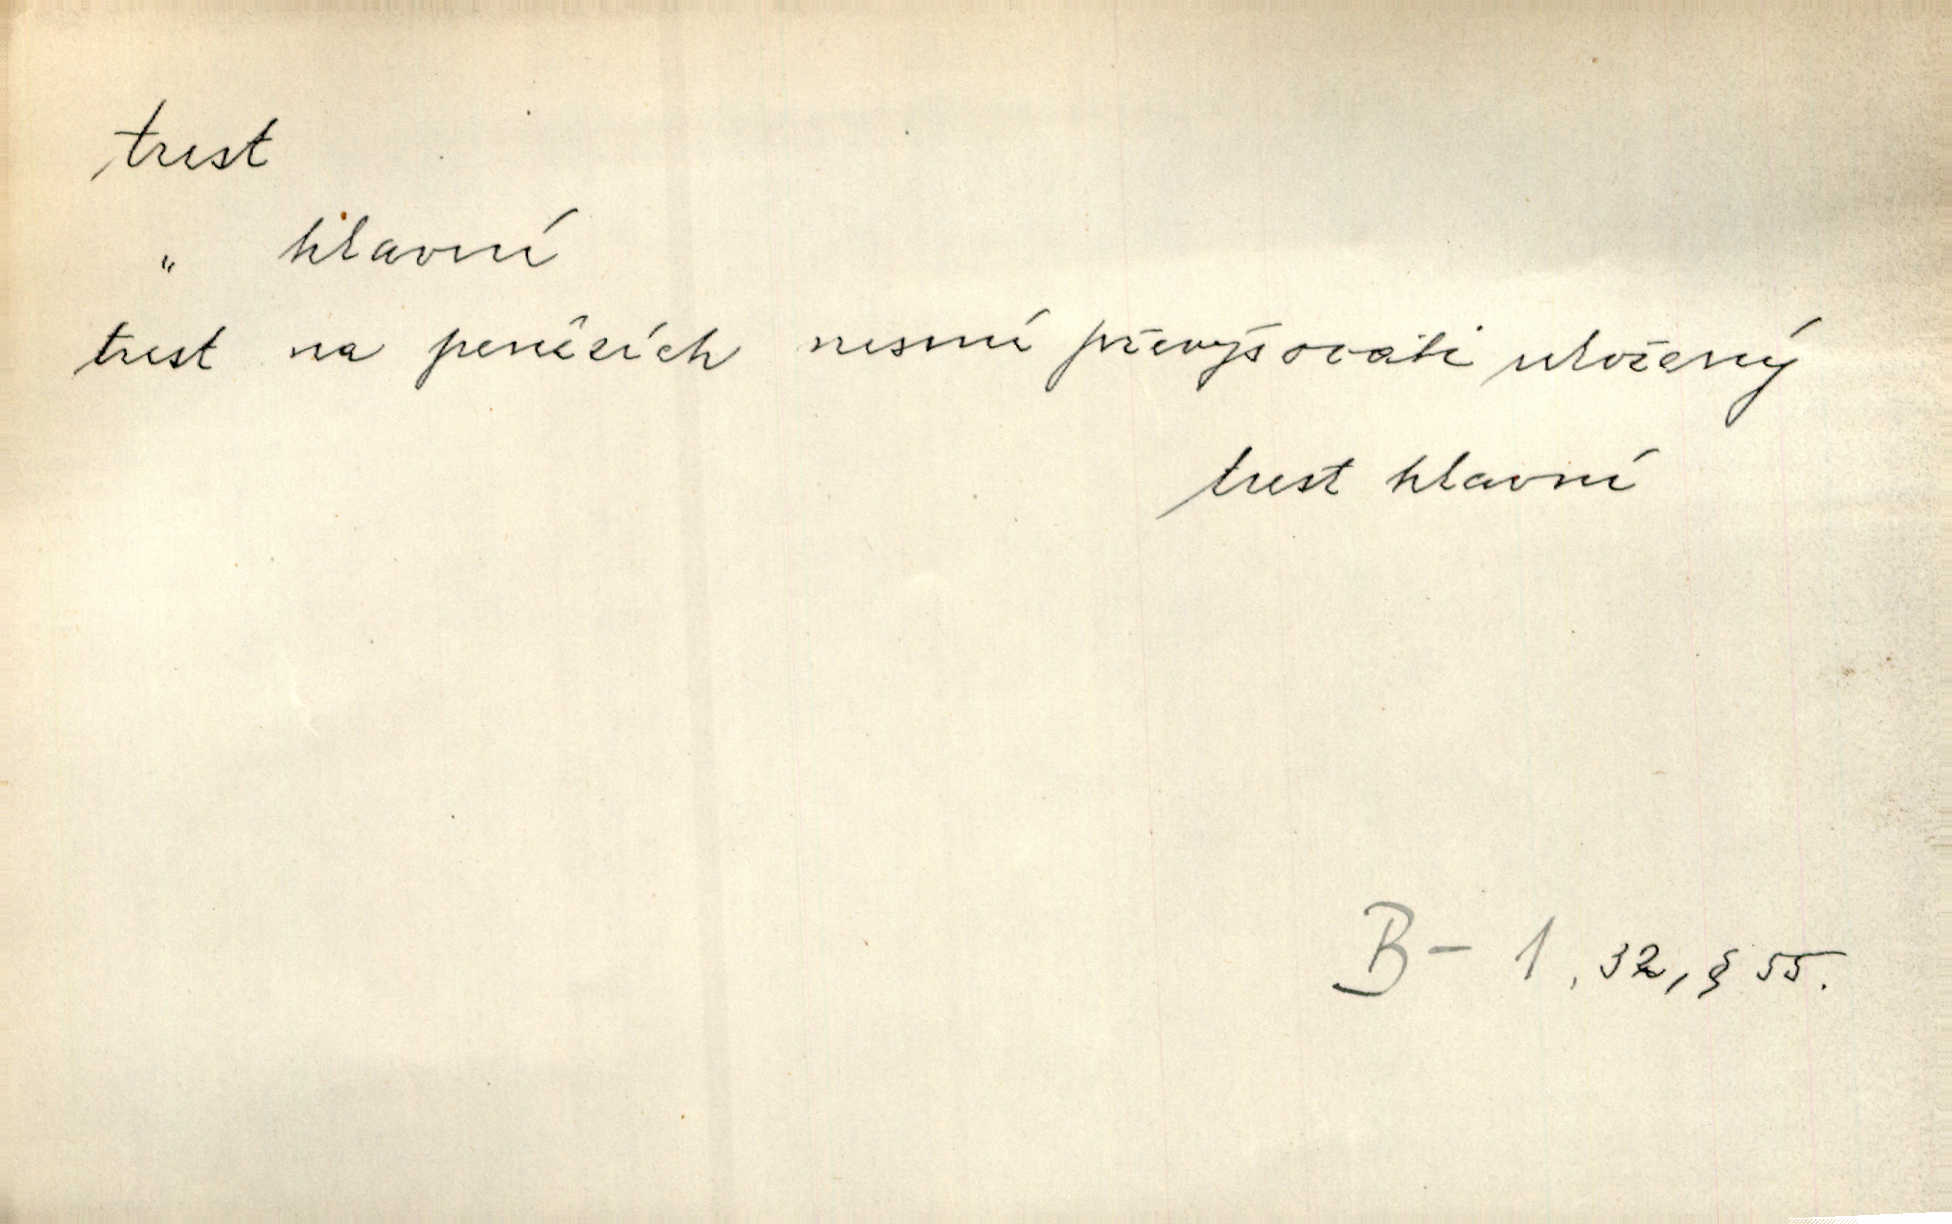 trest
„ hlavní
trest na penězích nesmí převyšovati uložený
trest hlavní
B- 1, 32, § 55.